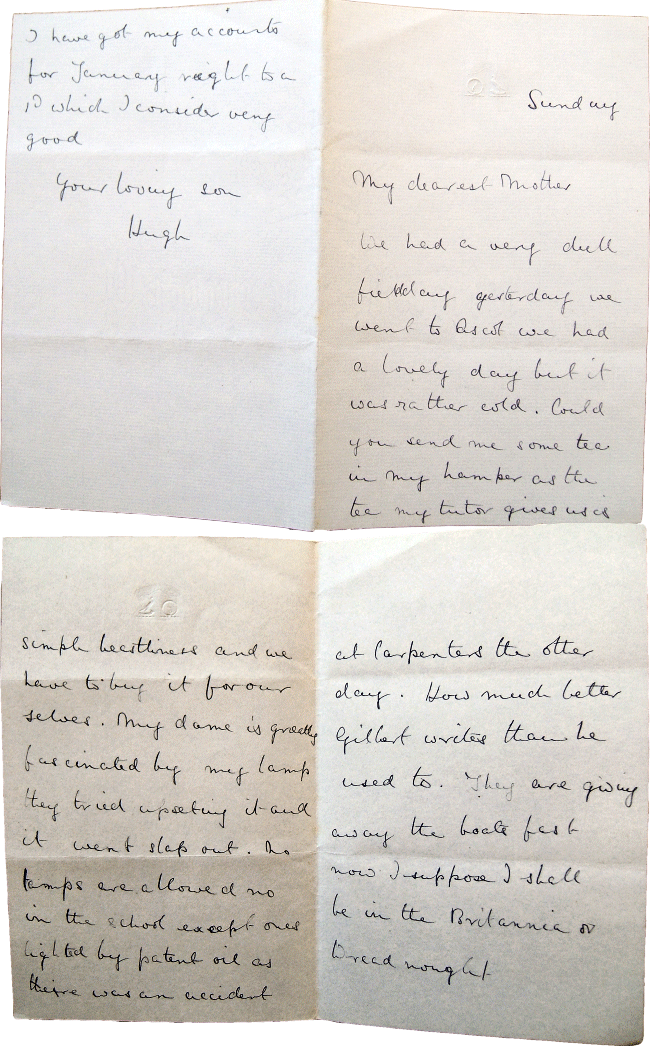 Sunday
My dearest Mother
We had a very dull
fieldday yesterday we
went to Ascot we had
a lovely day but it
was rather cold. Could
you send me some tea
in my hamper as the
tea my tutor gives us is
simple beastliness and we
have to buy it for our
selves. My dame is greatly
fascinated by my lamp
they tried upsetting it and
it went slap out. No
lamps are allowed no
in the school except ones
lighted by patent oil as
there was an accident
at Carpenters the other
day. How much better
Gilbert writes than he
used to. They are giving
away the boats fast
now I suppose I shall
be in the Britannia or
Dreadnought
I have got my accounts
for January right to a
1D which I consider very
good
Your loving son
Hugh